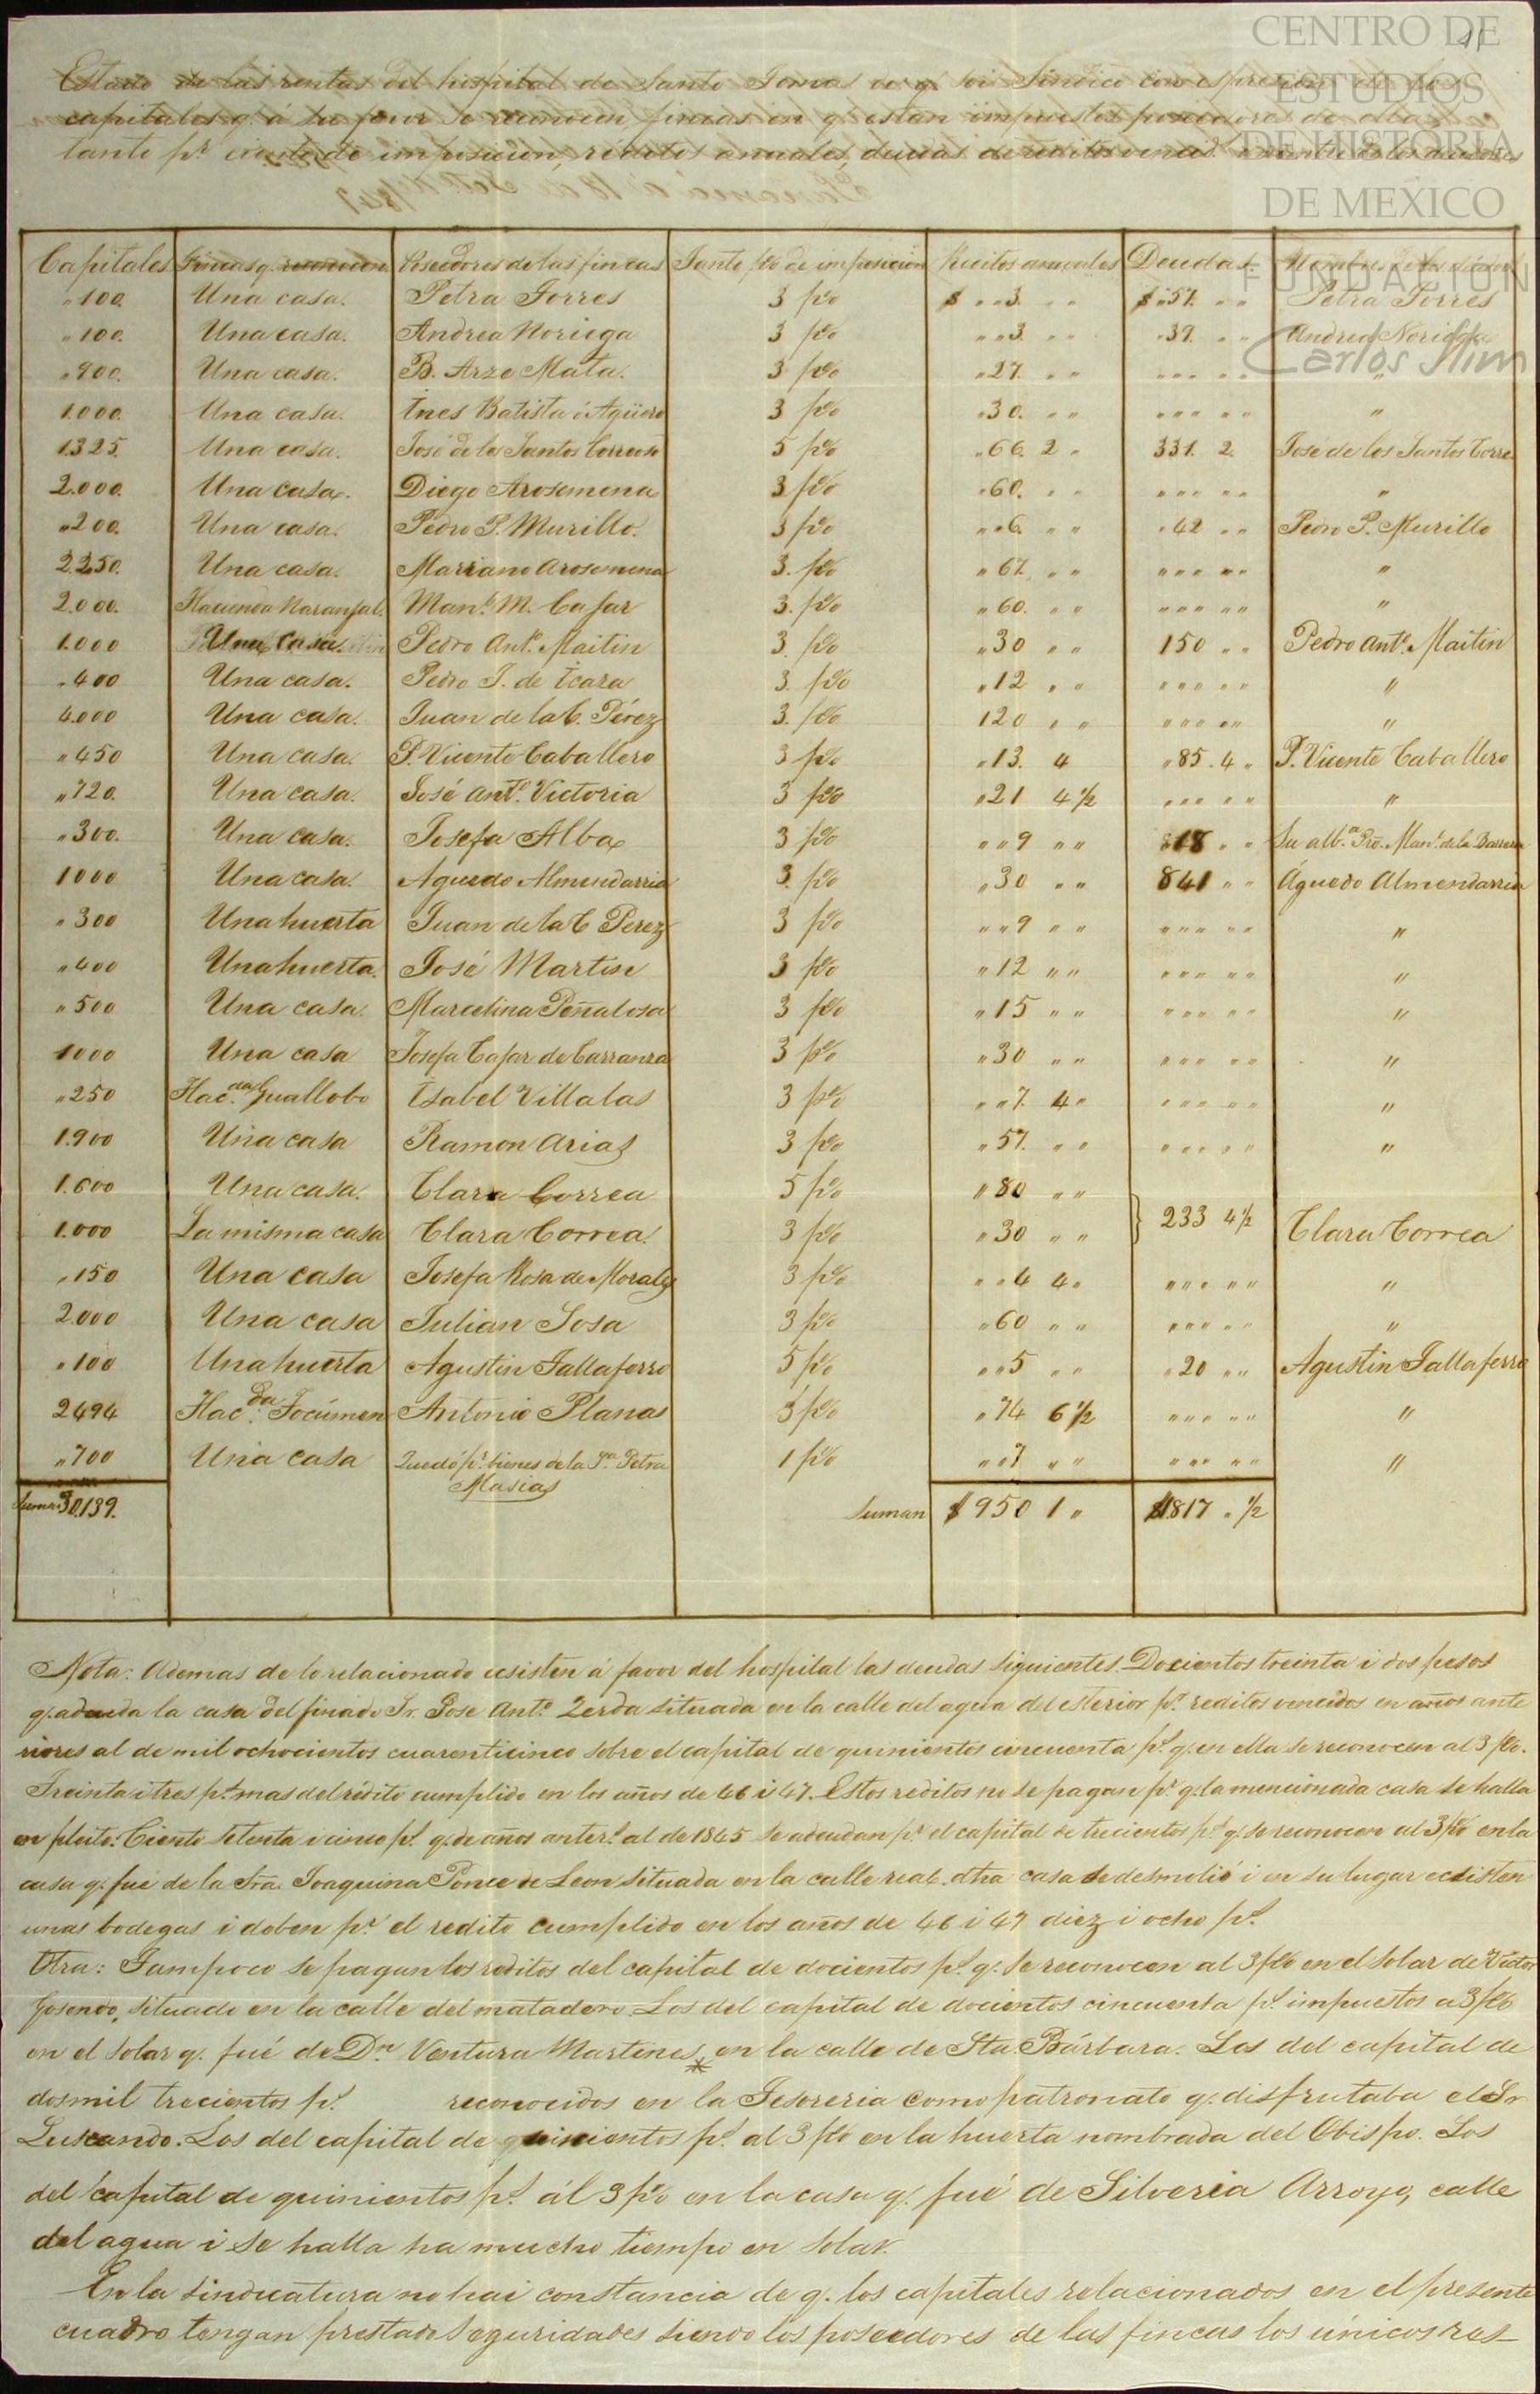 CENTRO DE
ESTUDIOS
DE HISTORIA
DE MEXICO
FUNDACIÓN
Carlos Slim
11
Estado de las rentas del hospital de Santo Tomas de q. soi Sindico con espresion de los
capitales q. á su favor se reconocen, fincas en q. estan impuestos, poseedores de ellas,
tanto pr. ciento de imposicion, réditos anuales, deudas de reditos vencs. i nombre de los deudores
Capitales Fincas q. reconocen Poseedores de las fincas Tanto p% de imposicion Reditos anuales Deudas Nombres de los deudores
"100. Una casa. Petra Torres 3 p% $ " "3. " " $ "57. " " Petra Torres
"100. Una casa. Andrea Noriega 3 p% " "3. " " "39. " " Andrea Noriega
"900. Una casa. B. Arze Mata. 3 p% "27. " " " " " " " "
1.000. Una casa. Ines Batista i Agüero 3 p% "30. " " " " " " " "
1325. Una casa. José de los Santos Correoso 5 p% "66. 2 " 331. 2. José de los Santos Corre
2.000. Una casa. Diego Arosemena 3 p% "60. " " " " " " " "
"200. Una casa. Pedro P. Murillo. 3 p% " "6. " " "42 " " Pedro P. Murillo
2.250. Una casa. Mariano Arosemena 3. p% "67. " " " " " " " "
2.000. Hacienda Naranjal. Manl. M. Cajar 3. p% "60. " " " " " " " "
1.000 Una casa. Pedro Anto. Maitin 3. p% "30 " " 150 " " Pedro Anto. Maitin
"400 Una casa. Pedro J. de Icaza 3. p% "12 " " " " " " " "
4.000 Una casa. Juan de la C. Pérez 3. p% 120 " " " " " " " "
"450 Una casa. P. Vicente Caballero 3 p% "13. 4 "85. 4 " P. Vicente Caballero
"720. Una casa. José Anto. Victoria 3 p% "21 4½ " " " " " "
"300. Una casa. Josefa Alba 3 p% " "9 " " "18 " " Su alba. Pro. Manl. de la Barrera
1000 Una casa. Aguedo Almendarria 3. p% "30 " " 841 " " Águedo Almendarria
"300 Una huerta Juan de la C Perez 3 p% " "9 " " " " " " " "
"400 Una huerta. José Martin 3 p% "12 " " " " " " " "
"500 Una casa. Marcelina Peñalosa 3 p% "15 " " " " " " " "
1000 Una casa Josefa Cajar de Carranza 3 p% "30 " " " " " " " "
"250 Hacda. Guallobo Isabel Villalas 3 p% " "7. 4 " " " " " " "
1.900 Una casa Ramon Arias 3 p% "57. " " " " " " " "
1.600 Una casa. Clara Correa 5 p% "80 " "
1.000 La misma casa Clara Correa. 3 p% "30 " " } 233 4½ Clara Correa
"150 Una casa Josefa Rosa de Morales 3 p% " "4 4 " " " " " " "
2.000 Una casa Julian Sosa 3 p% "60 " " " " " " " "
"100 Una huerta Agustin Tallaferro 5 p% " "5 " " "20 " " Agustin Tallaferro
2494 Hacda. Tocúmen Antonio Planas 3 p% "74 6½ " " " " " "
"700 Una casa Quedó pr. bienes de la Sa. Petra 1 p% " "7 " " " " " " " "
Masias
Suman 30.139. Suman $950 1 " $1.817 " ½
Nota: Ademas de lo relacionado ecsisten á favor del hospital las deudas siguientes. Docientos treinta i dos pesos
q. adeuda la casa del finado Sr. Jose Anto. Zerda situada en la calle del agua del esterior pr. reditos vencidos en años ante
riores al de mil ochocientos cuarenticinco sobre el capital de quinientos cincuenta ps. q. en ella se reconocen al 3 p%.
Treinta i tres ps. mas del rédito cumplido en los años de 46 i 47. Estos reditos no se pagan pr. q. la mencionada casa se halla
en pleito. Ciento setenta i cinco ps. q. de años anters. al de 1845 se adeudan pr. el capital de trecientos ps. q. se reconocen al 3 p% en la
casa q. fué de la Sra. Joaquina Ponce de Leon situada en la calle real. dha casa se desmolió i en su lugar ecsisten
unas bodegas i deben pr. el redito cumplido en los años de 46 i 47 diez i ocho ps.
Otra: Tampoco se pagan los reditos del capital de docientos ps. q. se reconocen al 3 p% en el solar de Victor
Gosendo, situado en la calle del matadero. Los del capital de docientos cincuenta ps. impuestos a 3 p%
en el solar q. fué de Dn. Ventura Martines * en la calle de Sta. Bárbara. Los del capital de
dos mil trecientos ps. reconocidos en la Tesoreria como patronato q. disfrutaba el Sr
Luscando. Los del capital de quinientos ps. al 3 p% en la huerta nombrada del Obispo. Los
del capital de quinientos ps. ál 3 p% en la casa q. fué de Silveria Arroyo, calle
del agua i se halla ha mucho tiempo en solar.
En la sindicatura no hai constancia de q. los capitales relacionados en el presente
cuadro tengan prestado seguridades siendo los poseedores de las fincas los únicos res-